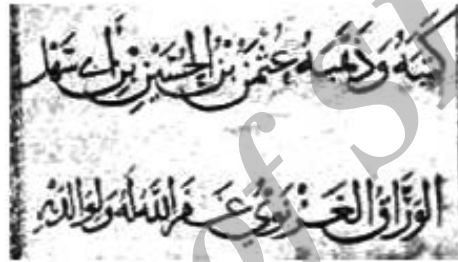 كتبه وذهبه عثمن بن الحسين بن ابي سهل
الوراق الغزنوي غفر الله له ولوالديه
of S